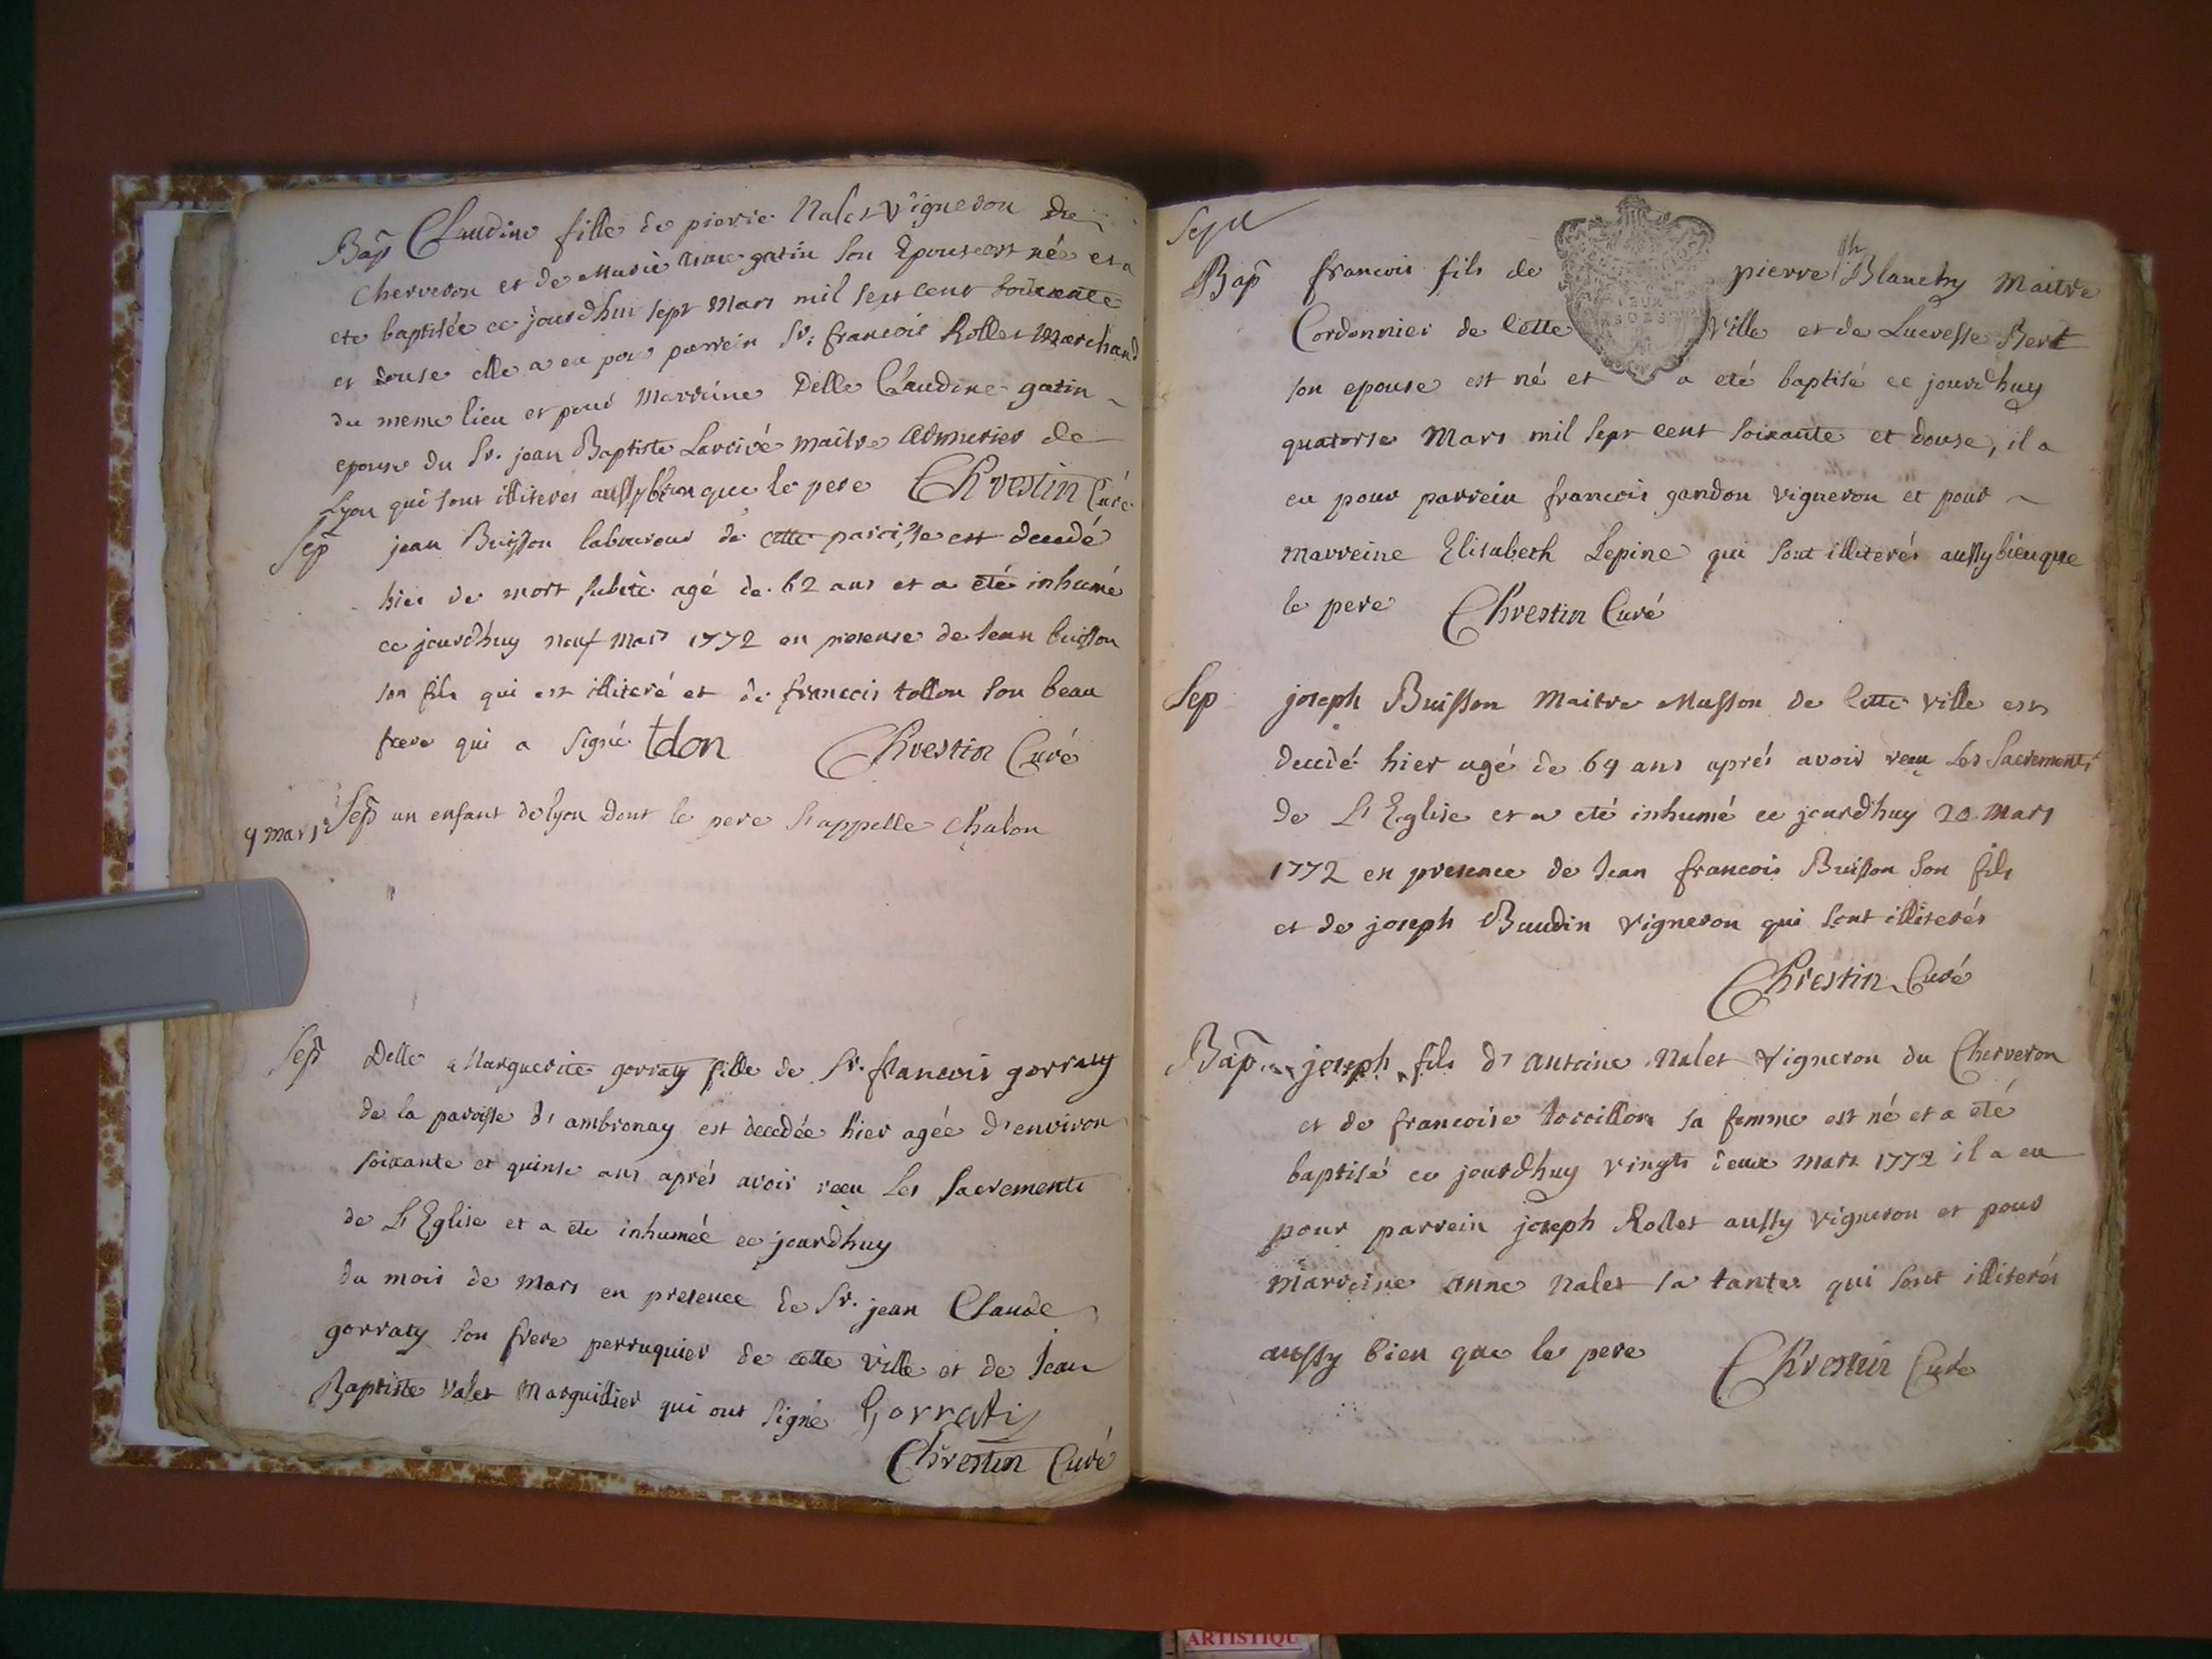 Bap Claudine fille de pierre Nalet Vigneron du
Cherveron et de Marie anne gatin son Epouse est née et a
ete baptisée ce jourdhui sept Mars mil sept cent soixante
et douse elle a eu pour parrein Sr. francois Rollet Marchand
du meme lieu et pour Marreine Delle Claudine gatin
epouse du Sr. jean Baptiste Larrivé maitre Armurier de
Lyon qui sont illiterés aussy bien que le pere Chrestin Curé
Sep jean Buisson laboureur de cette paroisse est decedé
hier de mort subite agé de 62 ans et a eté inhumé
ce jourdhuy neuf Mars 1772 en presense de Jean buisson
son fils qui est illiteré et de francois tollon son beau
frere qui a signé tdon Chrestin Curé
9 mars Sep un enfant de lyon dont le pere s'appelle Chalon
Sep Delle Marguerite gorraty fille de Sr. francois gorraty
de la paroisse d'ambronay est decedée hier agée d'environ
soixante et quinse ans aprés avoir recu les Sacrements
de L'Eglise et a ete inhumée ce jourdhuy
du mois de Mars en presence de Sr. jean Claude
gorraty son frere perruquier de cette Ville et de Jean
Baptiste Valet Marguillier qui ont signé Gorrati
Chrestin Curé
Sepu
Bap francois fils de pierre Blanchy Maitre
Cordonnier de Cette Ville et de Lucresse Bert
son epouse est né et a eté baptisé ce jourdhuy
quatorse Mars mil sept cent soixante et douse, il a
eu pour parrein francois gandon vigneron et pour
marreine Elisabeth Lepine qui sont illiterés aussy bien que
le pere Chrestin Curé
Sep joseph Buisson Maitre Masson de Cette Ville est
decedé hier agé de 69 ans aprés avoir recu Les Sacrements
de L'Eglise et a eté inhumé ce jourdhuy 20 Mars
1772 en presence de Jean francois Buisson son fils
et de joseph Baudin Vigneron qui sont illiterés
Chrestin Curé
Bap joseph fils d'antoine Nalet Vigneron du Cherveron
et de francoise torcillon sa femme est né et a eté
baptisé ce jourdhuy vingts deux Mars 1772 il a eu
pour parrein joseph Rollet aussy Vigneron et pour
marreine anne Nalet sa tante qui sont illiterés
aussy bien que le pere Chrestin Curé
ARTISTIQU